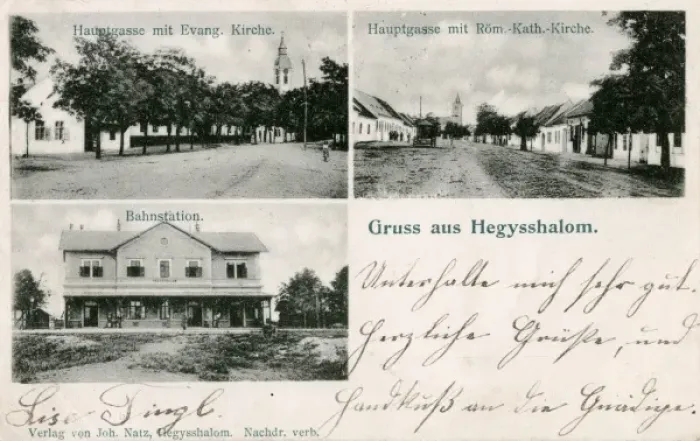 Hauptgasse mit Evang. Kirche.
Hauptgasse mit Röm.-Kath.-Kirche.
Bahnstation.
Gruss aus Hegysshalom.
Unterhalte mich sehr gut.
Herzliche Grüße, und
Handkuß an die Gnädige.
Lisa Tingl.
Verlag von Joh. Natz, Hegysshalom. Nachdr. verb.